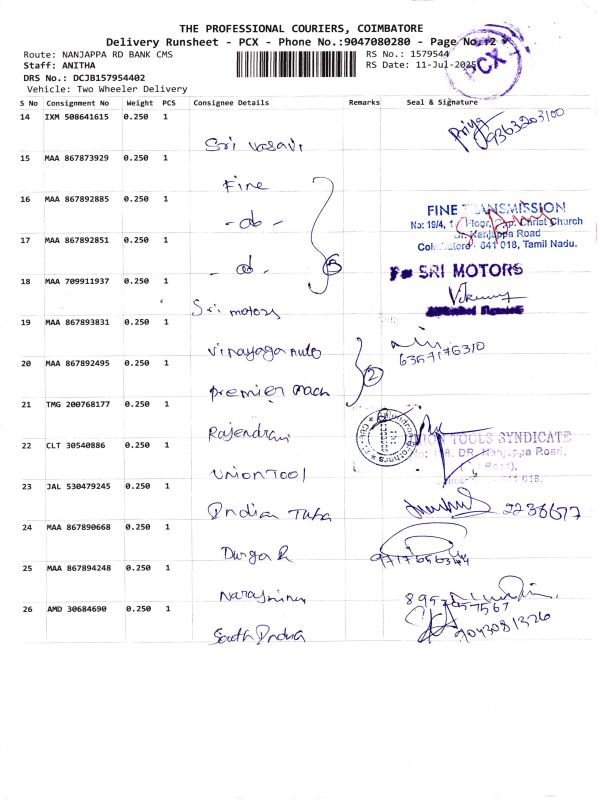 THE PROFESSIONAL COURIERS, COIMBATORE
Delivery Runsheet - PCX - Phone No.:9047080280 - Page No.:2
Route: NANJAPPA RD BANK CMS RS No.: 1579544
Staff: ANITHA RS Date: 11-Jul-2025
PCX
DRS No.: DCJB157954402
Vehicle: Two Wheeler Delivery
S No Consignment No Weight PCS Consignee Details Remarks Seal & Signature
14 IXM 508641615 0.250 1
Priya
9363203100
Sri Vasavi
15 MAA 867873929 0.250 1
Fine
16 MAA 867892885 0.250 1
- do -
FINE TRANSMISSION
No: 19/4, 1 Floor, Christ Church
Dr. Nanjappa Road
Coimbatore - 641 018, Tamil Nadu.
17 MAA 867892851 0.250 1
- do -
For SRI MOTORS
18 MAA 709911937 0.250 1
Sri motors
19 MAA 867893831 0.250 1
Vinayaga Auto
6357176310
20 MAA 867892495 0.250 1
2
Premier Mach
21 TMG 200768177 0.250 1
Rajendran
UNION TOOLS SYNDICATE
DR. Nanjappa Road,
Road),
641 018.
22 CLT 30540886 0.250 1
Union Tool
23 JAL 530479245 0.250 1
Indian Tube
2238677
24 MAA 867890668 0.250 1
Durga R
25 MAA 867894248 0.250 1
26 AMD 30684690 0.250 1
9043081326
South India